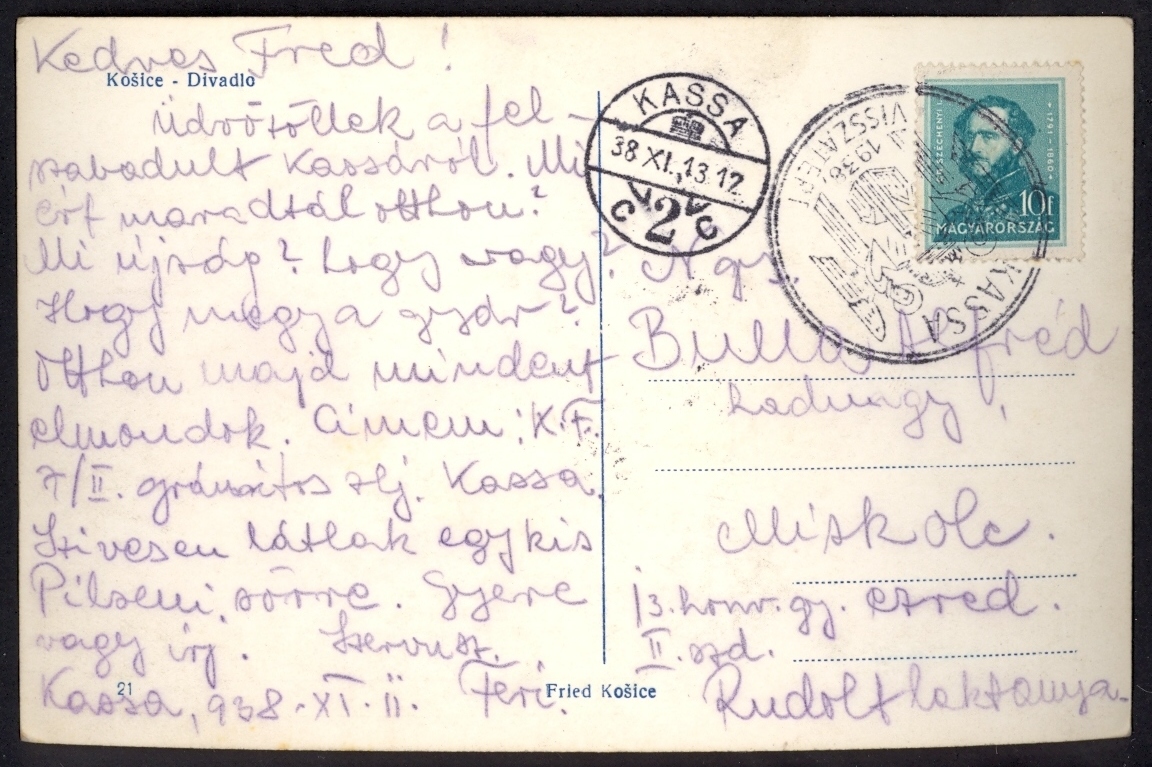 Kedves Fred!
Košice - Divadlo
Üdvözöllek a fel-
szabadult Kassáról. Mi
ért maradtál otthon?
Mi újság? Hogy vagy?
Hogy megy a gyár?
Otthon majd mindent
elmondok. Cimem: K.F.
7/II. gránátos zlj. Kassa.
Szivesen látlak egy kis
Pilseni sörre. Gyere
vagy írj. Szervusz.
Kassa, 938.XI.11. Feri.
21
Fried Košice
KASSA
38 XI. 13 17
C 2 C
1938
VISSZATÉRT
KASSA
SZÉCHENYI 1791-1860
10f
MAGYARORSZÁG
Ngs.
Bulla Alfréd
hadnagy,
Miskolc.
13. honv. gy. ezred.
II. szd.
Rudolf laktanya.